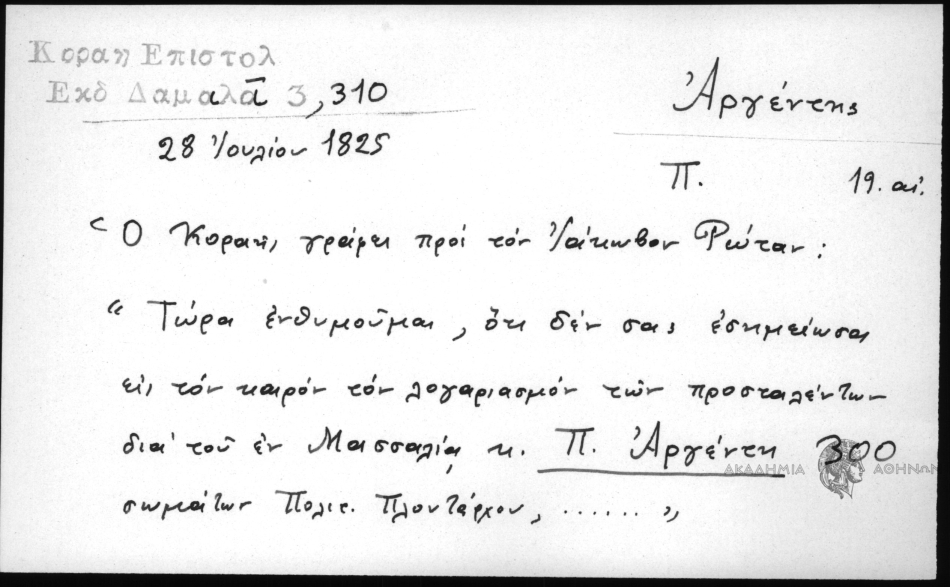 Κοραη Επιστολ
Εκδ Δαμαλᾶ 3, 310
28 Ἰουλίου 1825
Ἀργέντης
Π. 19. αἰ.
Ὁ Κοραῆς γράφει πρὸς τὸν Ἰάκωβον Ῥώταν:
“ Τώρα ἐνθυμοῦμαι, ὅτι δὲν σας ἐσημείωσα
εἰς τὸν καιρὸν τὸν λογαριασμὸν τῶν προσταλέντων
διὰ τοῦ ἐν Μασσαλίᾳ κ. Π. Ἀργέντη 300
σωμάτων Πολιτ. Πλουτάρχου, ...... „
ΑΚΑΔΗΜΙΑ ΑΘΗΝΩΝ